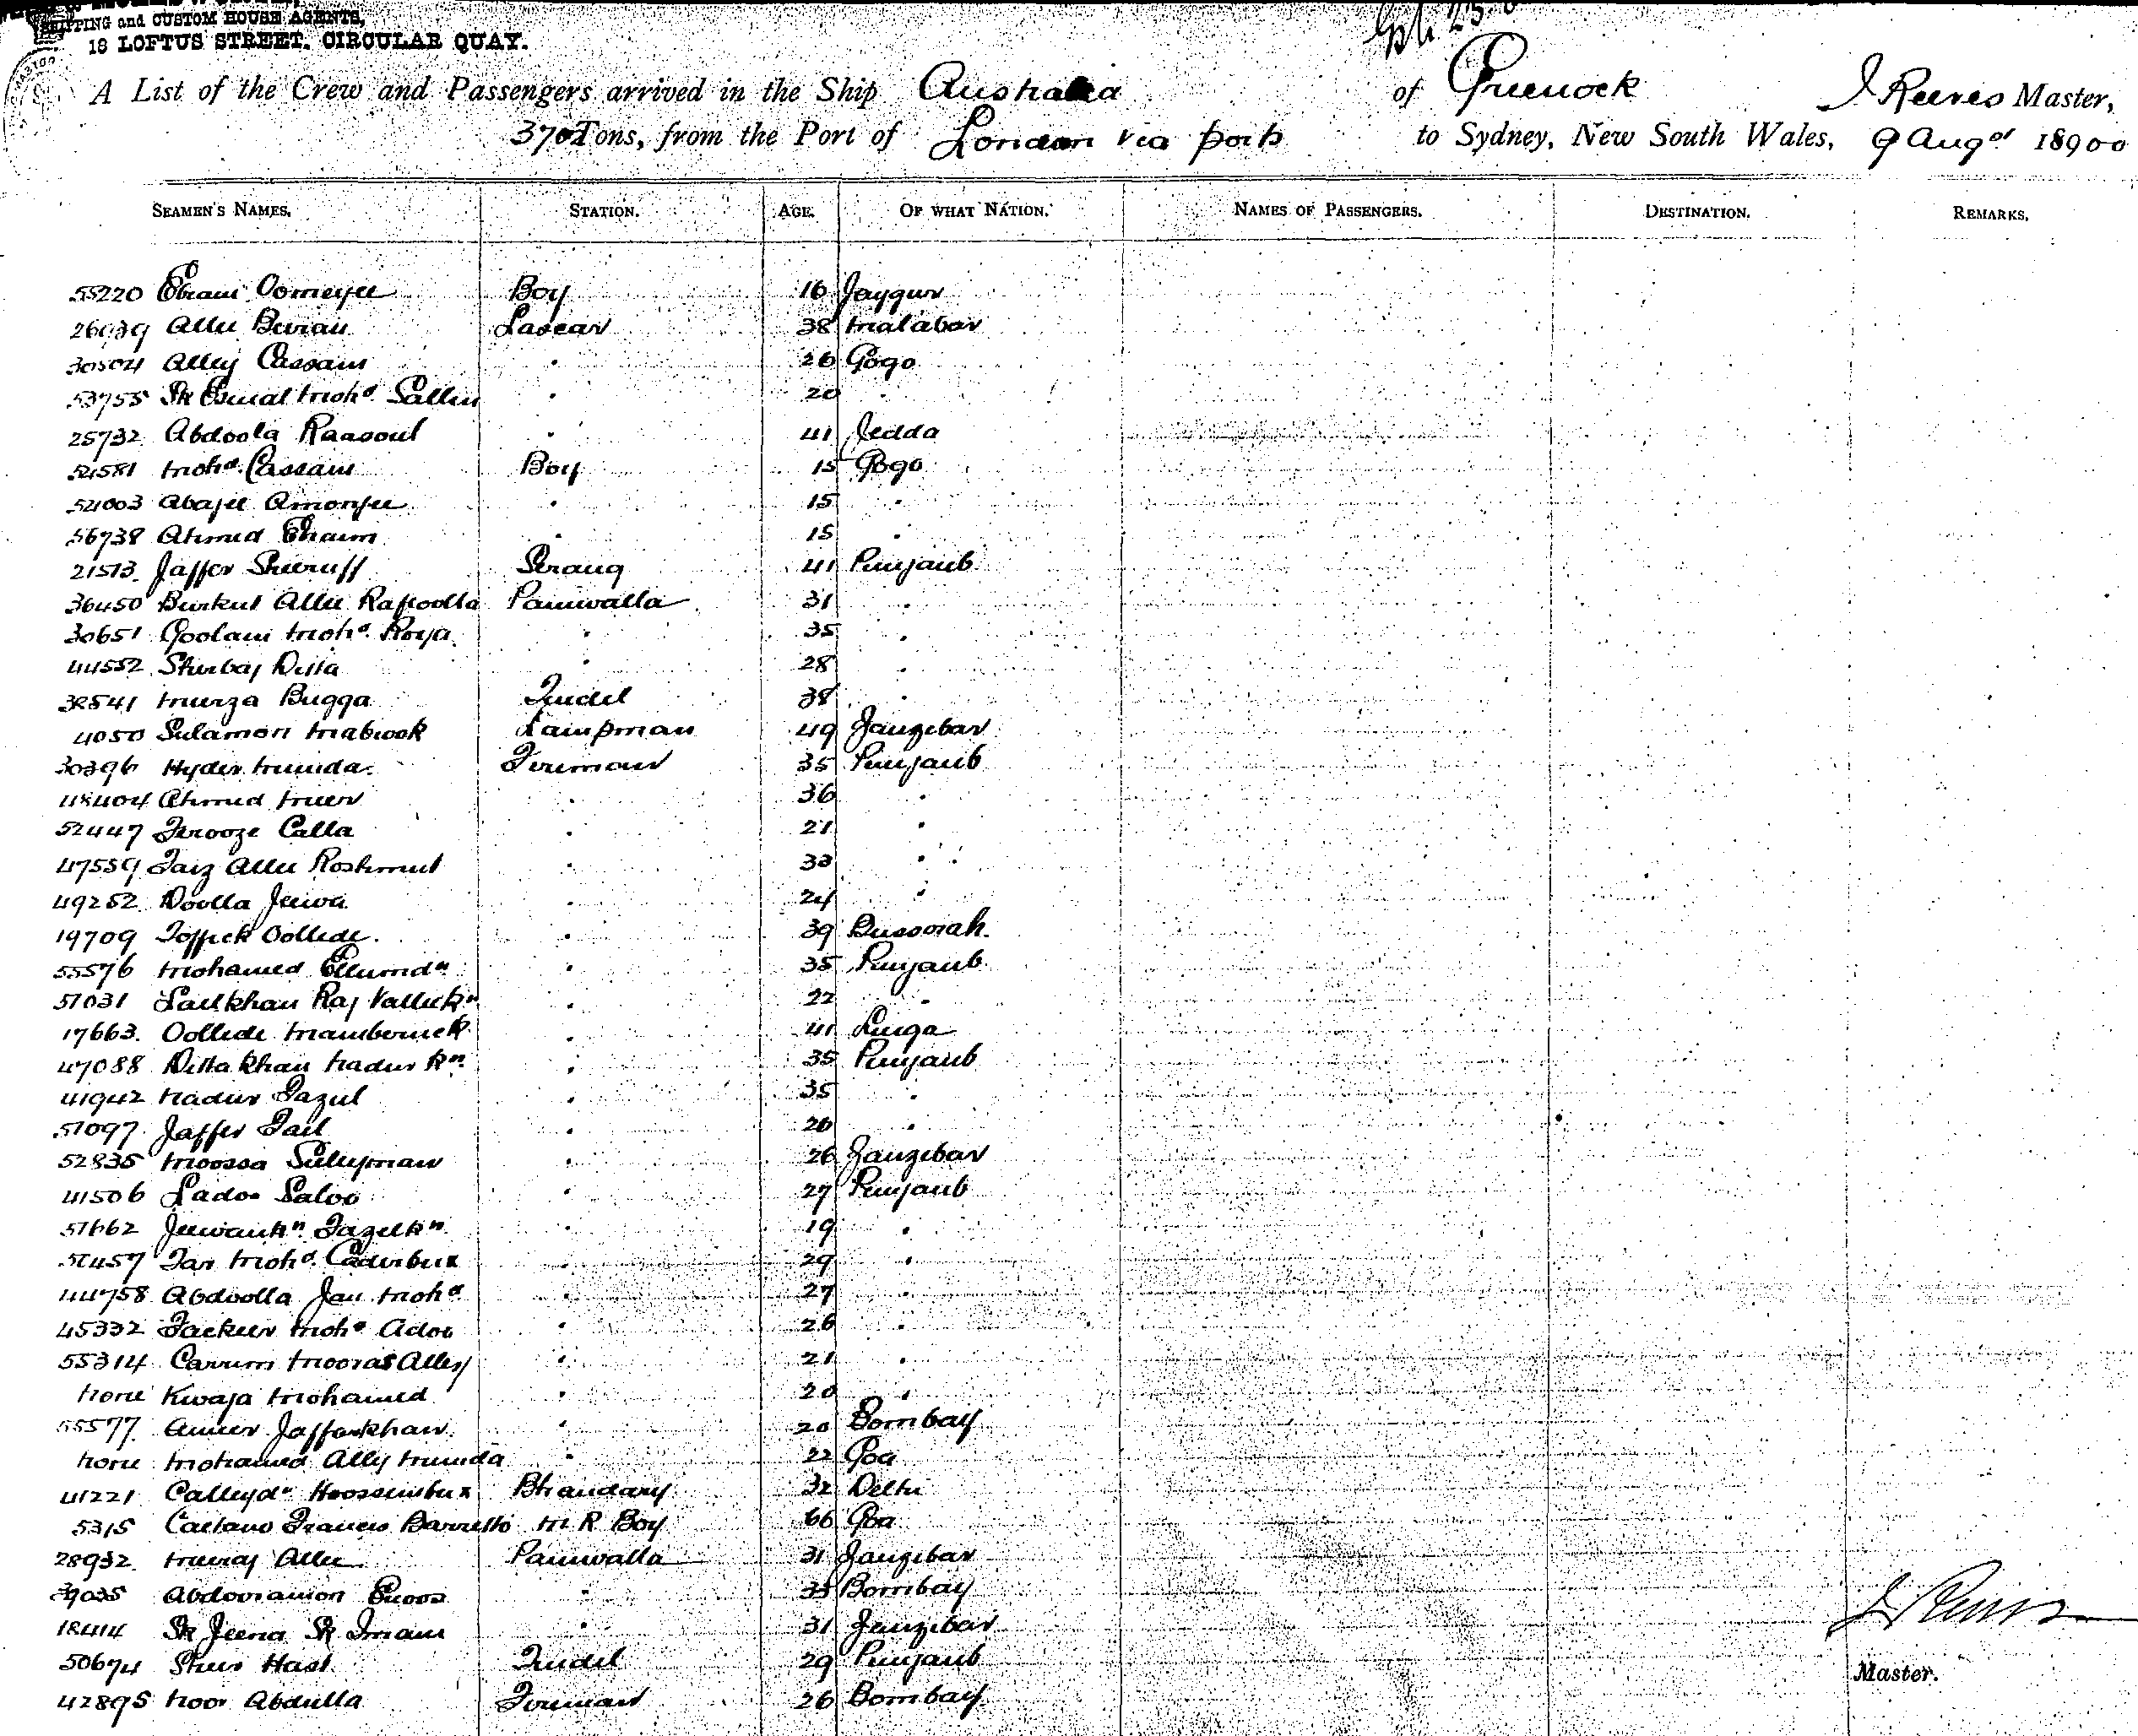 SHIPPING and CUSTOM HOUSE AGENTS,
18 LOFTUS STREET, CIRCULAR QUAY.
A List of the Crew and Passengers arrived in the Ship Australia of Greenock J Reeves Master,
370 Tons, from the Port of London via ports to Sydney, New South Wales, 9 Augst 18900
SEAMEN'S NAMES. STATION. AGE. OF WHAT NATION. NAMES OF PASSENGERS. DESTINATION. REMARKS.
55220 Ebram Oomerjee Boy 16 Jaygur
26939 Allee Lascar 38 Malabar
30504 Alley Cassam " 26 Gogo
53755 Sk Esmal Mohd. " 20 "
25732 Abdoola Raasoul " 41 Jedda
Mohd. Cassam Boy 15 Gogo
54003 Abajee Amonjee " 15 "
56738 Ahmed Ebram " 15 "
21573 Jaffer Sheruff Serang 41 Punjaub
36450 Burkut Allee Paniwalla 31 "
30651 Goolam Mohd. " 35 "
44552 Ditta " 28 "
38541 Meerza Bugga Tindel 38 "
4050 Sulamon Mabrook Lampman 49 Zanzibar
30396 Hyder Fireman 35 Punjaub
48404 Ahmed Meer " 36 "
52447 Ferooze Calla " 21 "
47559 Faiz Allee " 33 "
49252 Doolla Jeewa " 24 "
19709 Oollede " 39 Bussorah
55576 Mohamed " 35 Punjaub
Lallkhan " 22 "
17663 Oollede " 41 Linga
47088 Ditta Khan Nadur Kn. " 35 Punjaub
41942 Nadur Fazul " 35 "
Jaffer " 26 "
52835 Moossa Suleyman " 26 Zanzibar
41506 Ladoo Saloo " 27 Punjaub
Jeewankn. Fazelkn. " 19 "
Mohd. Caderbux " 29 "
44758 Abdoolla Jan Mohd " 27 "
45332 Fackeer Mohd Adoo " 26 "
55314 Carrim Alley " 21 "
None Kwaja Mohamed " 20 "
55577 Ameer Jafferkhan " 20 Bombay
None Mohamed Ally " 22 Goa
41221 Hoosseinbux Bhandary 32 Delhi
5315 Caetano Francis Barretto M R Boy 66 Goa
28932 Allee Paniwalla 31 Zanzibar
39035 " 35 Bombay
18414 Sk Jeena Sk Imam " 31 Zanzibar
50674 Tindel 29 Punjaub
42895 Noor Abdulla Fireman 26 Bombay
J Reeves
Master.